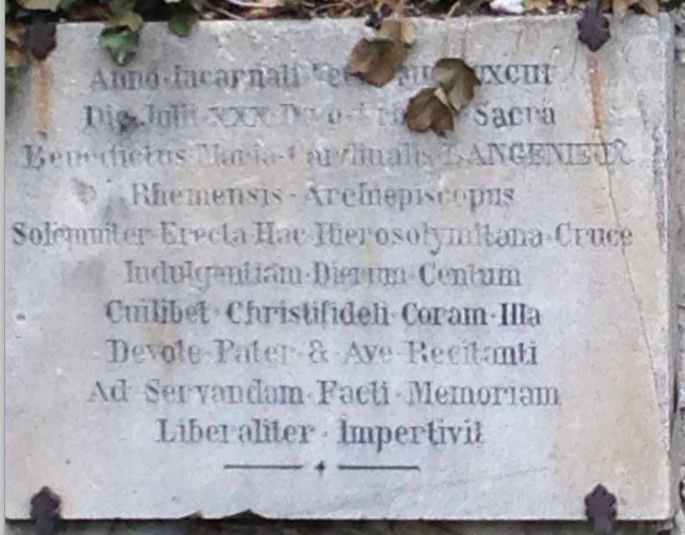 Anno·Incarnati
Die·Julii·XXX· Sacra
Benedictus·Maria·Cardinalis·LANGENIEUX
Rhemensis·Archiepiscopus
Solemniter·Erecta·Hac·Hierosolymitana·Cruce
Indulgentiam·Dierum·Centum
Cuilibet·Christifideli·Coram·Illa
Devote·Pater·&·Ave·Recitanti
Ad·Servandam·Facti·Memoriam
Liberaliter·Impertivit